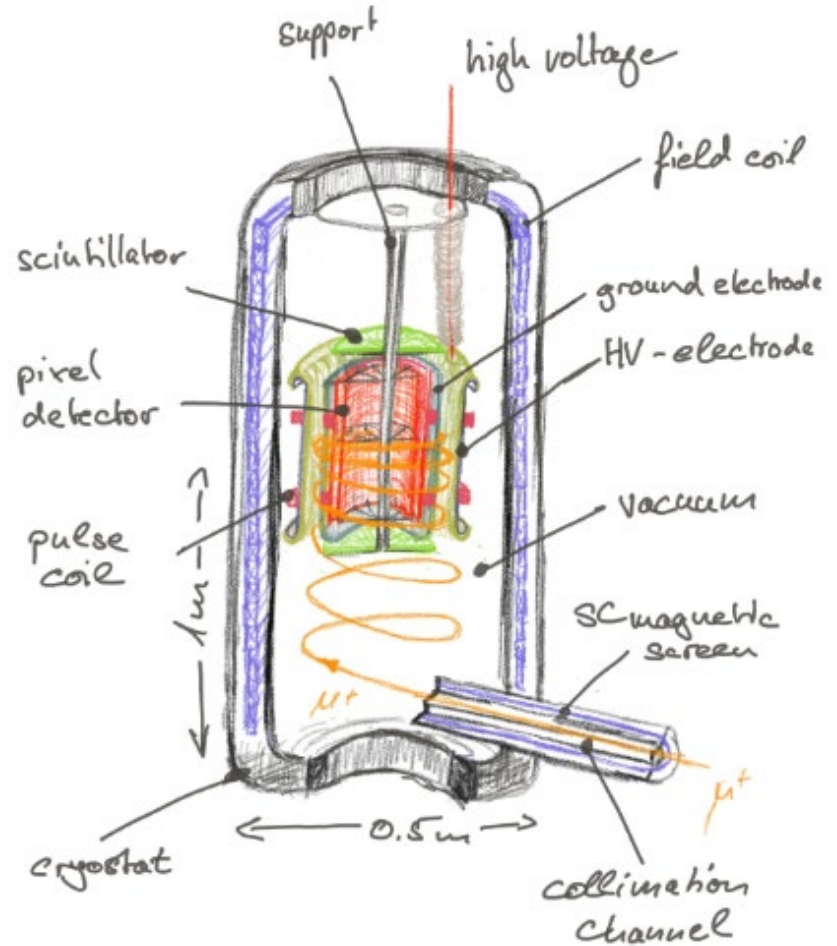 support
high voltage
field coil
scintillator
ground electrode
HV-electrode
pixel
detector
vacuum
pulse
coil
1m
SC magnetic
screen
μ+
μ+
0.5m
cryostat
collimation
channel